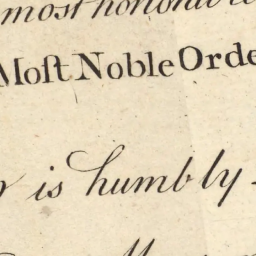 most honorable
Moſt Noble Orde
r is humbly